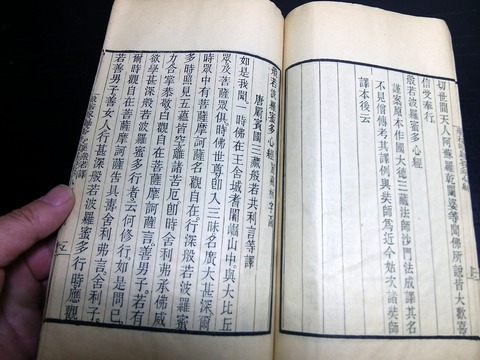 切世間天人阿蘇羅乾闥婆等聞佛所說皆大歡喜
信受奉行
般若波羅蜜多心經
謹案原本作國大德三藏法師沙門法成譯其名
不見僧傳考其譯例與奘師為近今姑次諸奘師
譯本後云
般若波羅蜜多心經
唐罽賓國三藏般若共利言等譯
如是我聞一時佛在王舍城耆闍崛山中與大比丘
眾及菩薩眾俱時佛世尊即入三昧名廣大甚深爾
時眾中有菩薩摩訶薩名觀自在行深般若波羅蜜
多時照見五蘊皆空離諸苦厄即時舍利弗承佛威
力合掌恭敬白觀自在菩薩摩訶薩言善男子若有
欲學甚深般若波羅蜜多行者云何修行如是問已
爾時觀自在菩薩摩訶薩告具壽舍利弗言舍利子
若善男子善女人行甚深般若波羅蜜多行時應觀